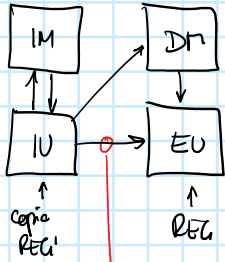 IM
DM
IU
EU
copia
REG
REG